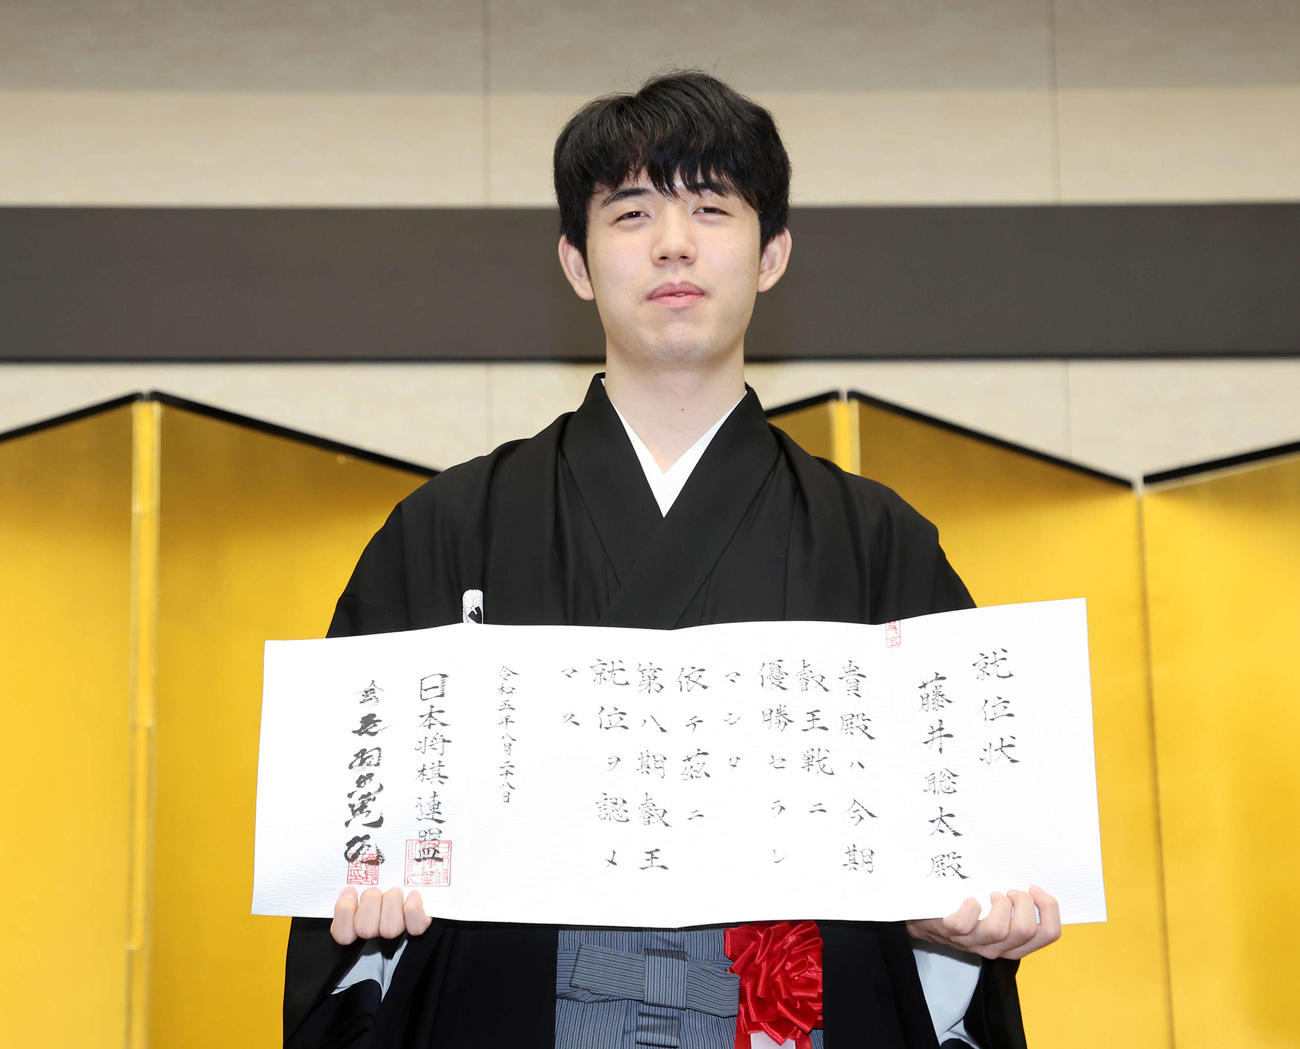 就位状
藤井聡太殿
貴殿ハ今期
叡王戦ニ
優勝セラレ
マシタ
依テ茲ニ
第八期叡王
就位ヲ認メ
マス
令和五年八月二十八日
日本将棋連盟
会長羽生善治